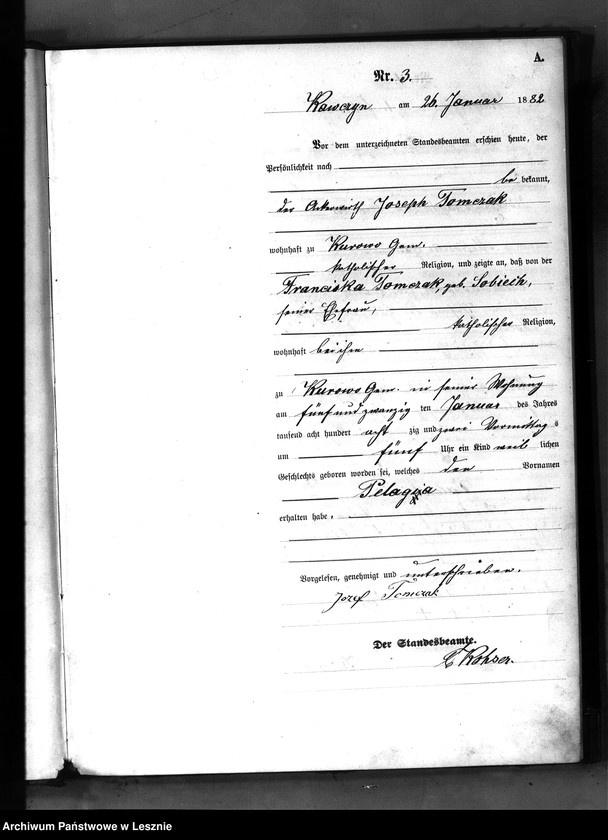 A.
Nr. 3.
Kawczyn am 26. Januar 1882
Vor dem unterzeichneten Standesbeamten erschien heute, der
Persönlichkeit nach
be bekannt,
der Ackerwirth Joseph Tomczak
wohnhaft zu Kurowo Gem.
katholischer Religion, und zeigte an, daß von der
Franciska Tomczak, geb. Sobiech,
seiner Ehefrau,
katholischer Religion,
wohnhaft bei ihm
zu Kurowo Gem. in seiner Wohnung
am fünf und zwanzig ten Januar des Jahres
tausend acht hundert acht zig und zwei Vormittag s
um fünf Uhr ein Kind weib lichen
Geschlechts geboren worden sei, welches den Vornamen
Pelagia
erhalten habe.
Vorgelesen, genehmigt und unterschrieben.
Jozef Tomczak
Der Standesbeamte.
Archiwum Państwowe w Lesznie